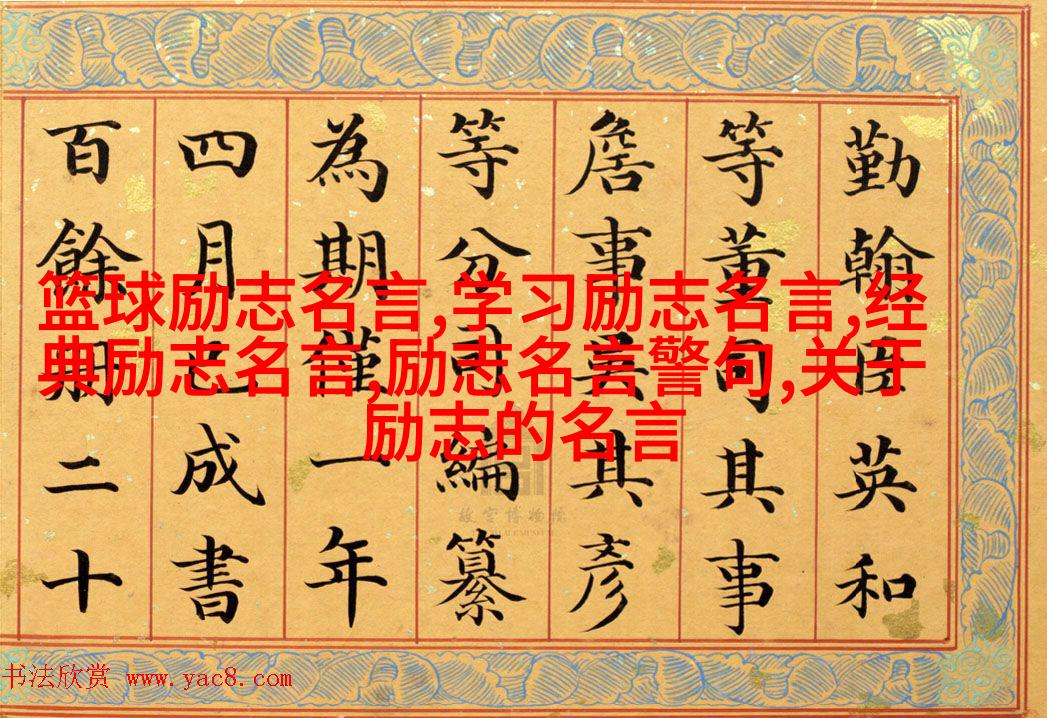 勤翰臣英和
等董司其事
詹事吳其彥
等分司編纂
為期僅一年
四月已成書
百餘冊二十
篮球励志名言,学习励志名言,经
典励志名言,励志名言警句,关于
励志的名言
故宫博物院
书法欣赏 www.yac8.com